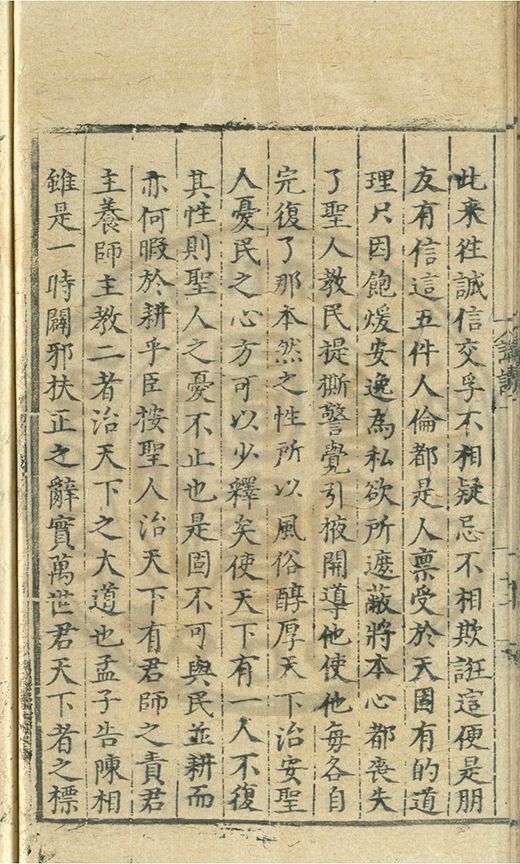 此来徃誠信交孚不相疑忌不相欺誑這便是朋
友有信這五件人倫都是人禀受於天固有的道
理只因飽煖安逸為私欲所遮蔽將本心都喪失
了聖人教民提撕警覺引掖開導他使他每各自
完復了那本然之性所以風俗醇厚天下治安聖
人憂民之心方可以少釋矣使天下有一人不復
其性則聖人之憂不止也是固不可與民並耕而
亦何暇於耕乎臣按聖人治天下有君師之責君
主養師主教二者治天下之大道也孟子告陳相
雖是一時闢邪扶正之辭實萬世君天下者之標